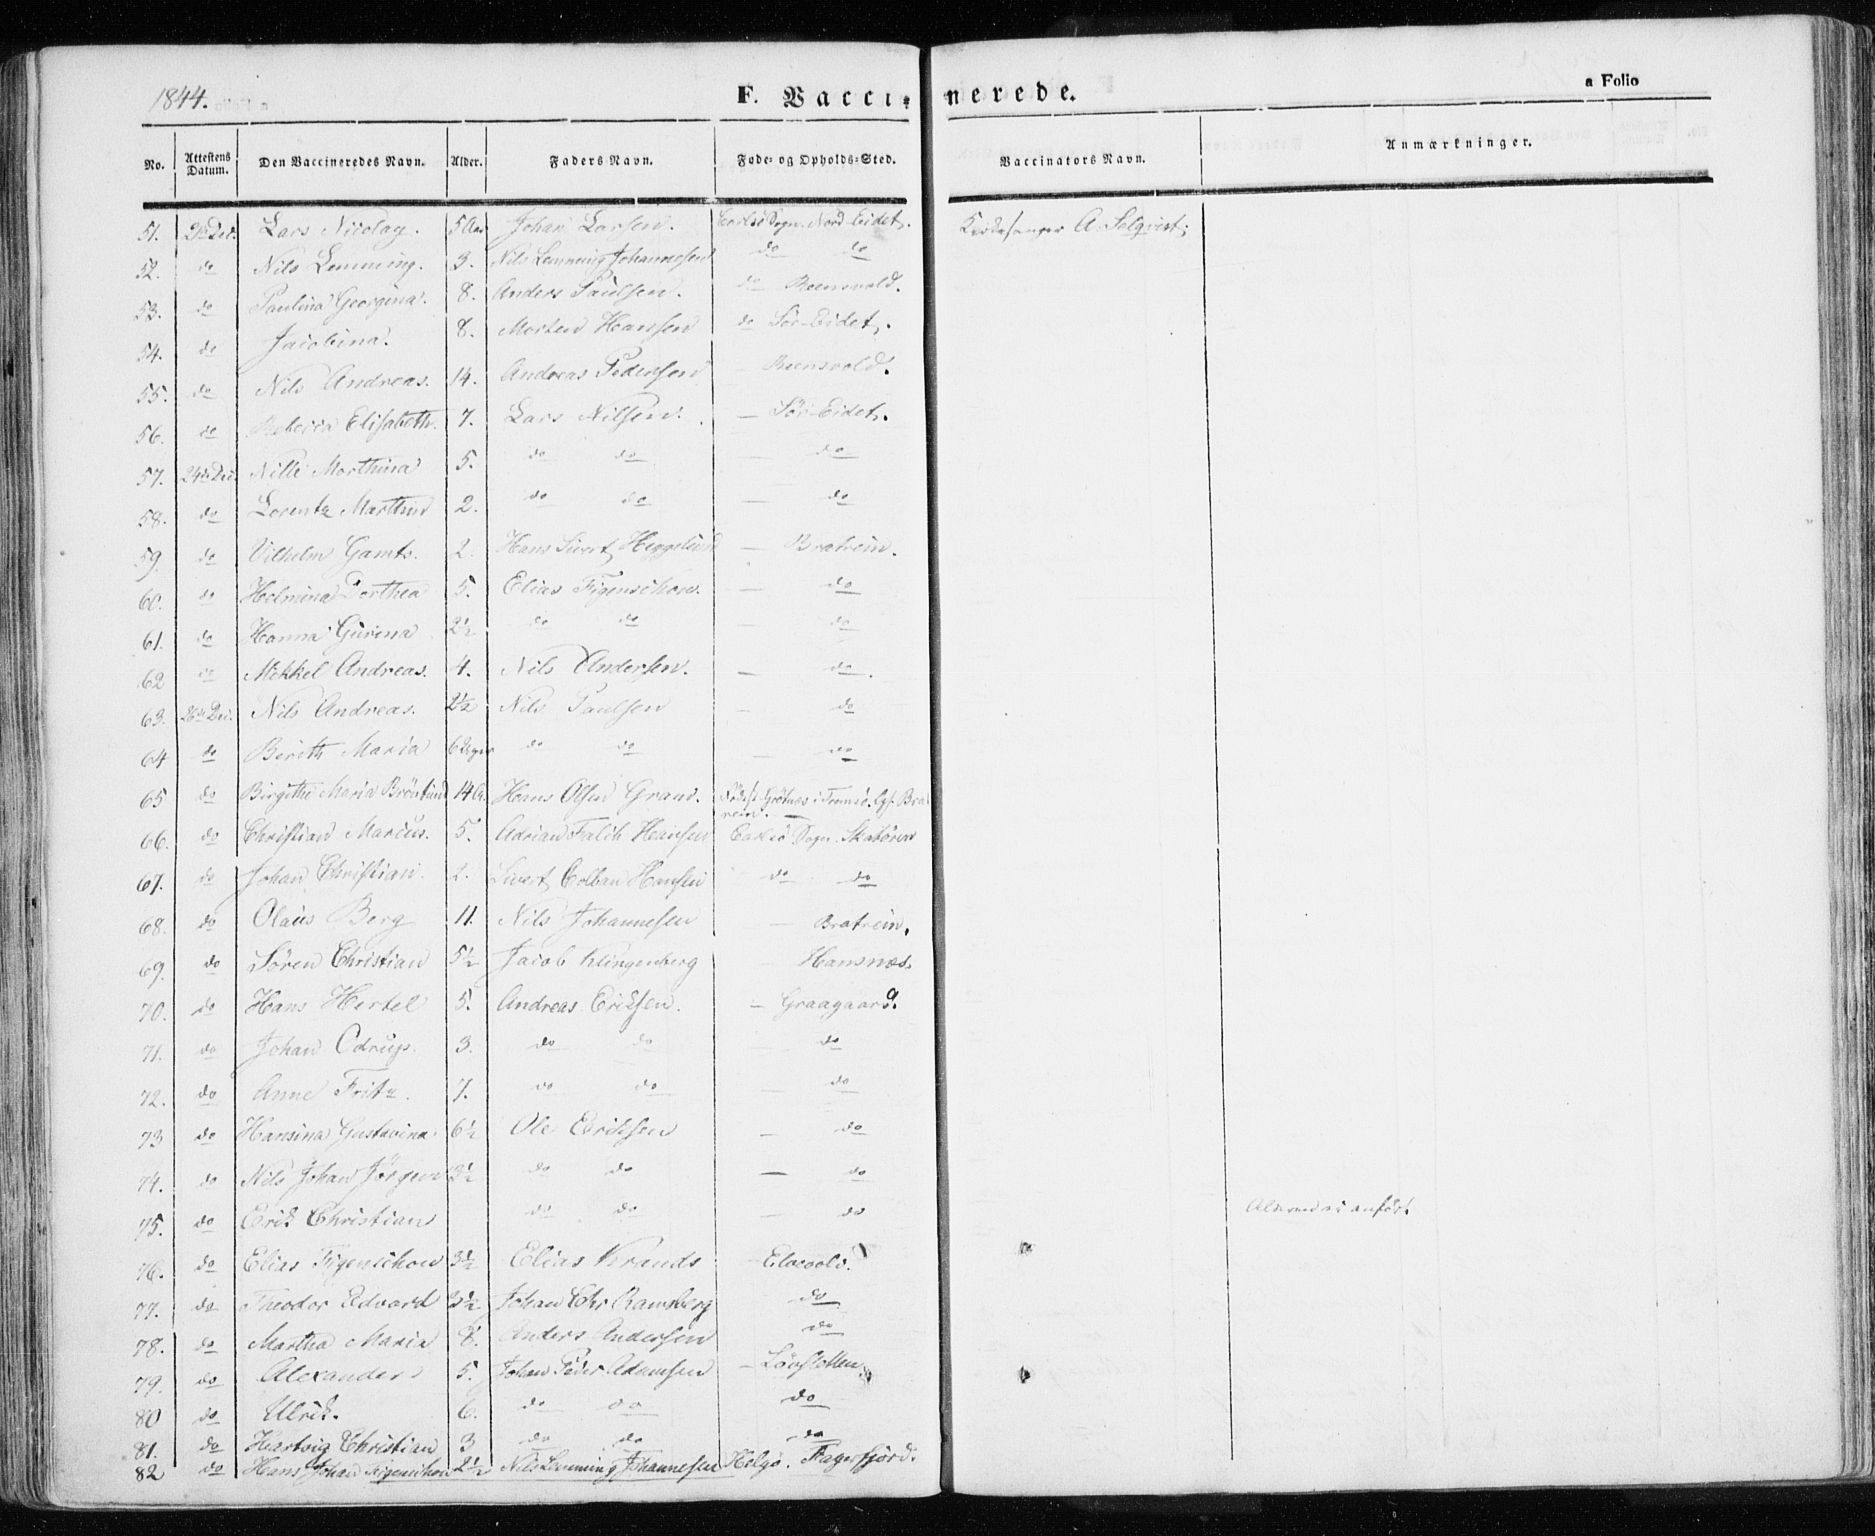 1844. F. Vaccinerede. a Folio
No. Attestens Datum. Den Vaccineredes Navn. Alder. Faders Navn. Føde- og Opholds-Sted. Vaccinators Navn. Anmærkninger.
51. Lars Nicolay. 5 Johan Larsen. Sogn. Nord-Eidet. Kirkesanger A. Selqvist.
52. do Nils Lemming. 3. Nils Lemming Johannesen do do
53. do Paulina Georgina. 8. Anders Paulsen. do Reensvold.
54. do Jacobina. 8. Morten Hansen do Sör-Eidet.
55. do Nils Andreas. 14. Andreas Pedersen — Reensvold.
56. do Rebecca Elisabeth. 7. Lars Nilsen. — Sör-Eidet.
57. 24de Dec. Nille Morthina 5. do do — do
58. do Lorentz Marthin 2. do do — do
59. do Vilhelm 2. Hans Sivert Heggelund — Bratrein.
60. do Helmina Dorthea 5. Elias Figenschou. — do
61. do Hanna Gurina 2½ do do — do
62 do Mikkel Andreas. 4. Nils Andersen. — do.
63. 26de Dec. Nils Andreas. 2½ Nils Paulsen — do
64 do Bereth Maria 6 Uger do do — do
65 do Birgithe Maria Brönlund 14 A. Hans Olsen Fødest. Grötnæs i Tromsö.
66. do Christian Marcus. 5. Adrian Falch Hansen Sogn. Skatören
67. do Johan Christian. 2. Sivert Colban Hansen do do
68. do Olaus Berg 11. Nils Johannesen — Bratrein.
69. do Sören Christian 5½ Jacob Klingenberg Hansnæs.
70. do Hans Hertel 5. Andreas Eriksen. — Graagaard.
71. do Johan Odrup. 3. do do — do
72. do Anne Fritz. 7. do do — do
73 do Hansina Gustavina 6½ Ole Eriksen — do
74. do Nils Johan Jörgen 3½ do do — do
75. do Erik Christian do do — do Alderen ei anfört.
76. do Elias Figenschou 3½ Elias Krands —
77. do Theodor Edvard 3½ Johan Chr. Ramsberg do
78. do Martha Maria 8. Anders Andersen do
79. do Alexander 5. Johan Peder Adamsen —
80 do Ulrik. 6. do do do
81. do Hartvig Christian 3 do do do
82 do Hans Johan Figenschou 2½ Nils Lemming Johannesen Helgö. Fagerfjord.